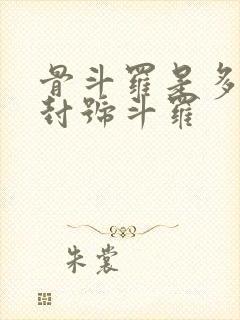 骨斗羅是多
封號斗羅
朱裳